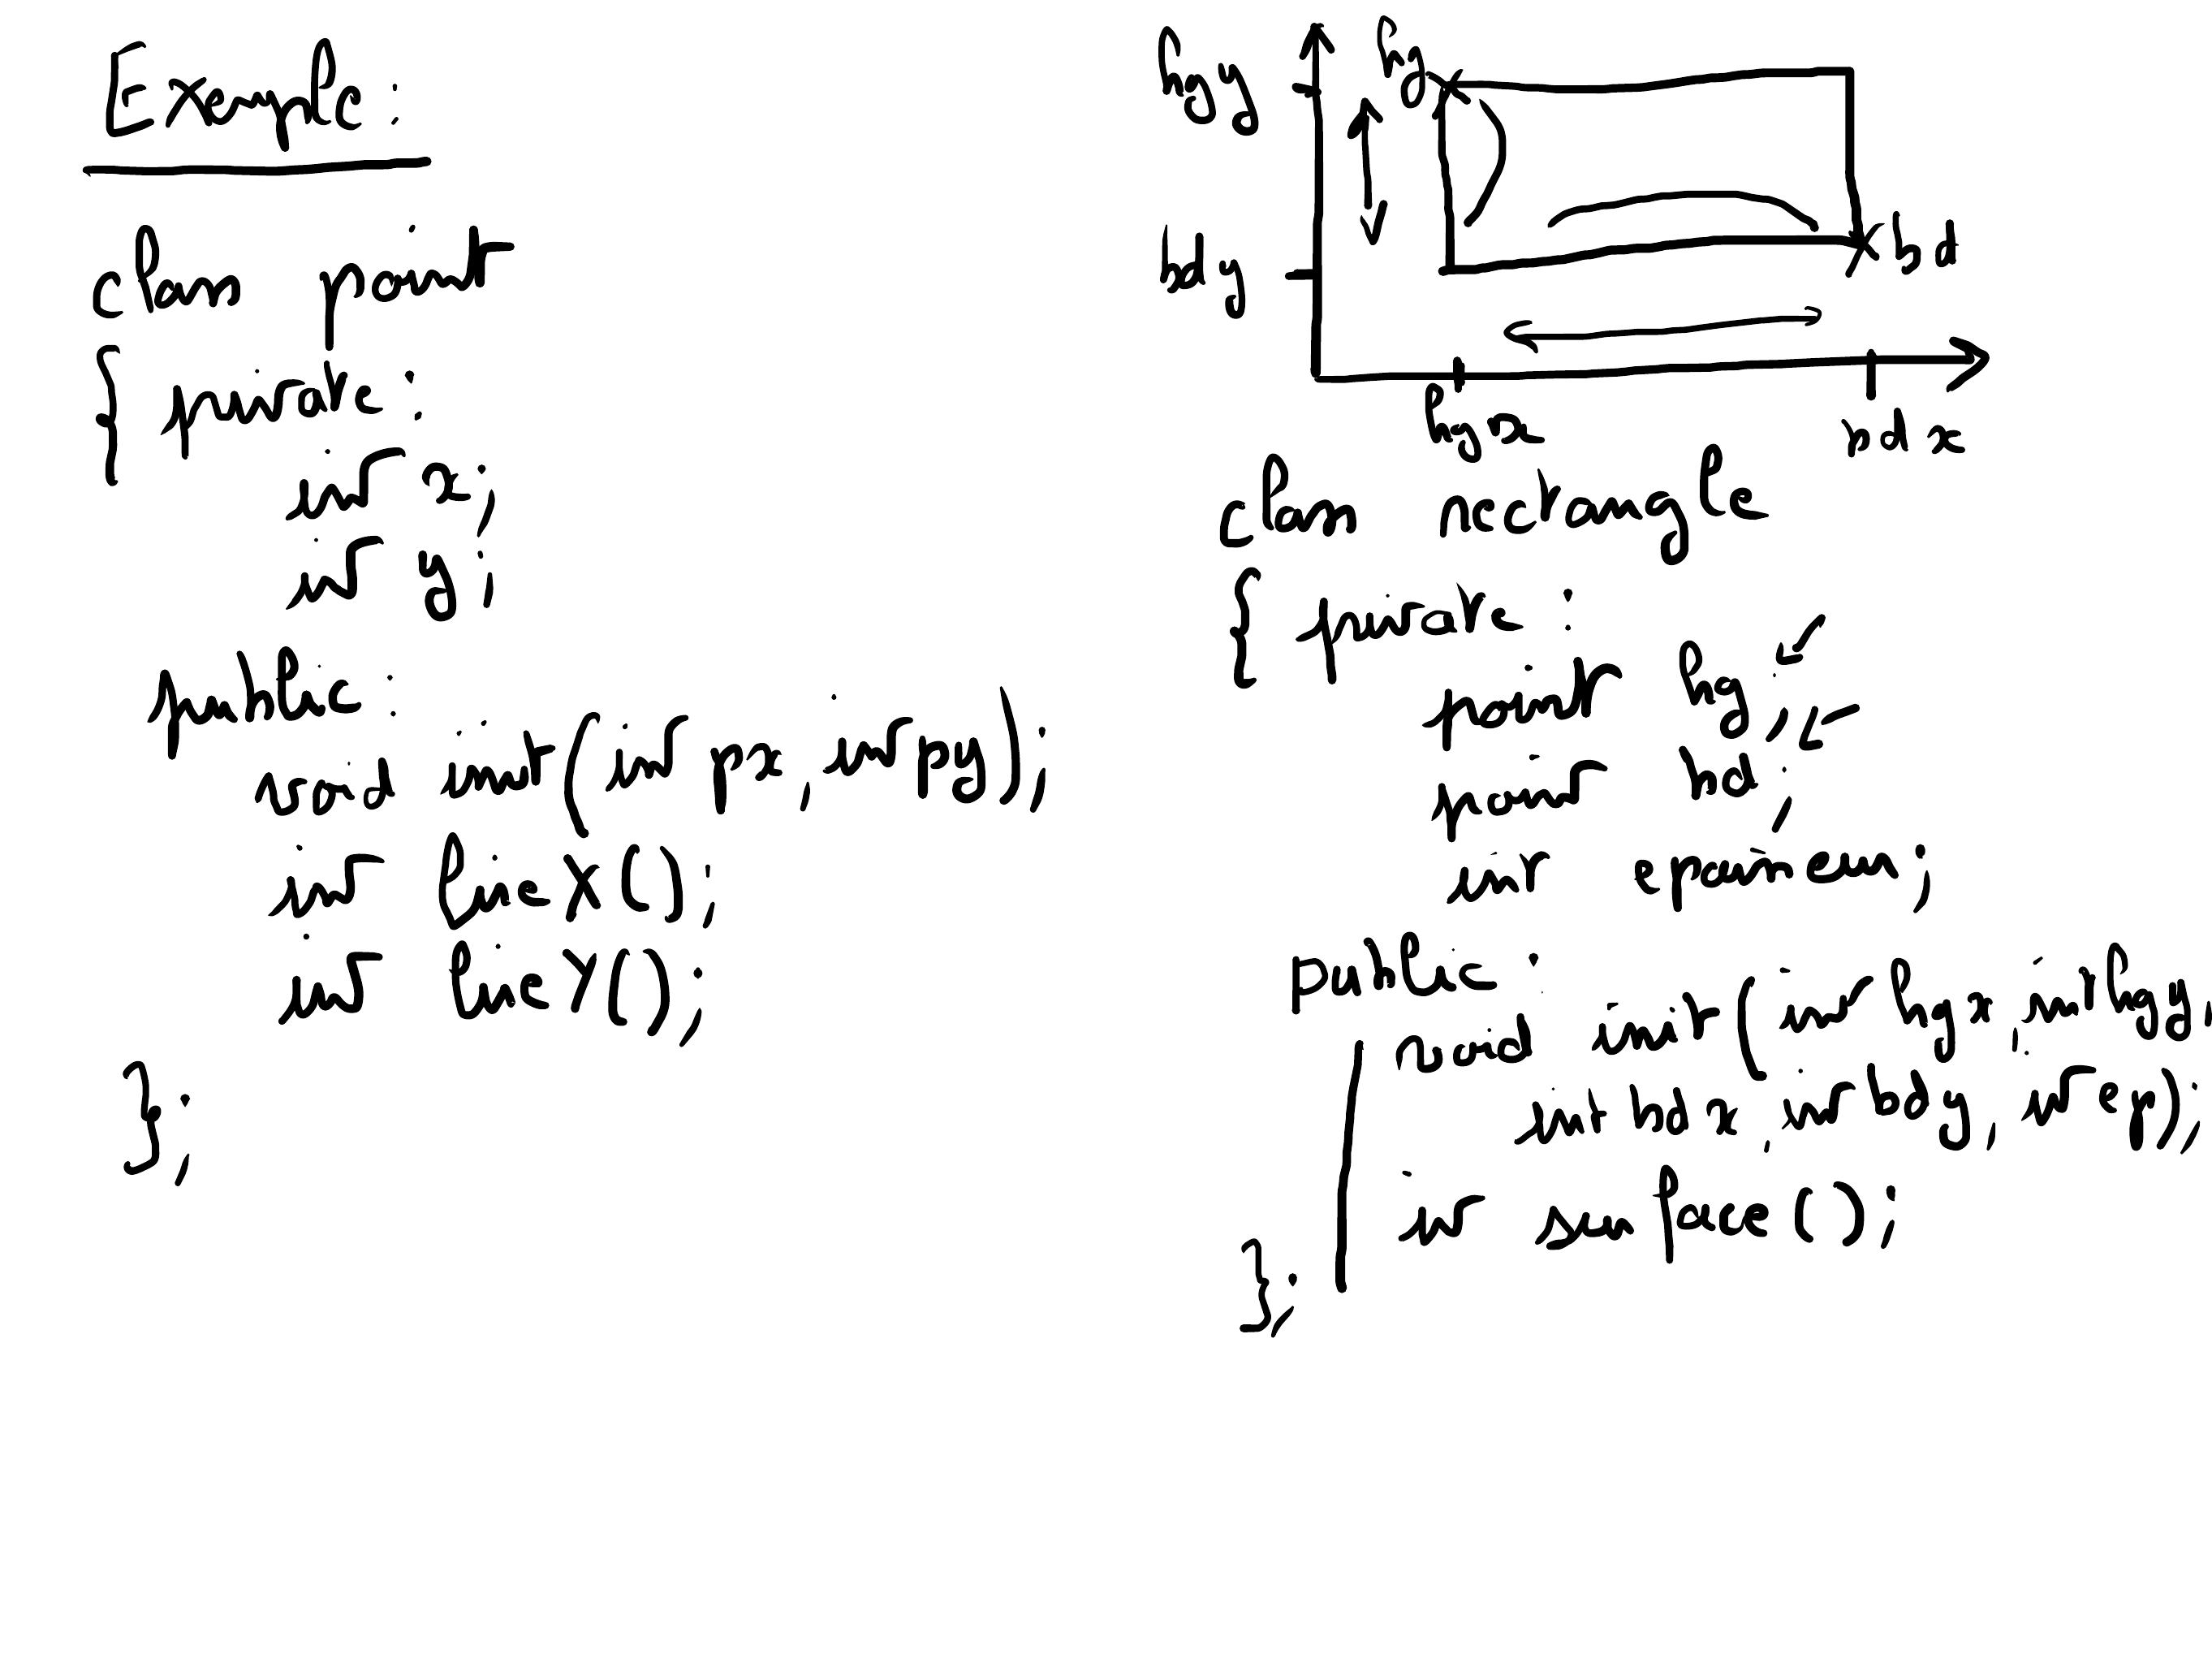 Exemple :
class point
{ private :
int x;
int y;
public :
void init(int px, int py);
int lireX();
int lireY();
};
hgy
hg
bdy
bd
hgx
bdx
class rectangle
{ private :
point hg;
point bd;
int epaisseur;
public :
void init(int hgx, int hgy,
int bdx, int bdy, int ep);
int surface();
};